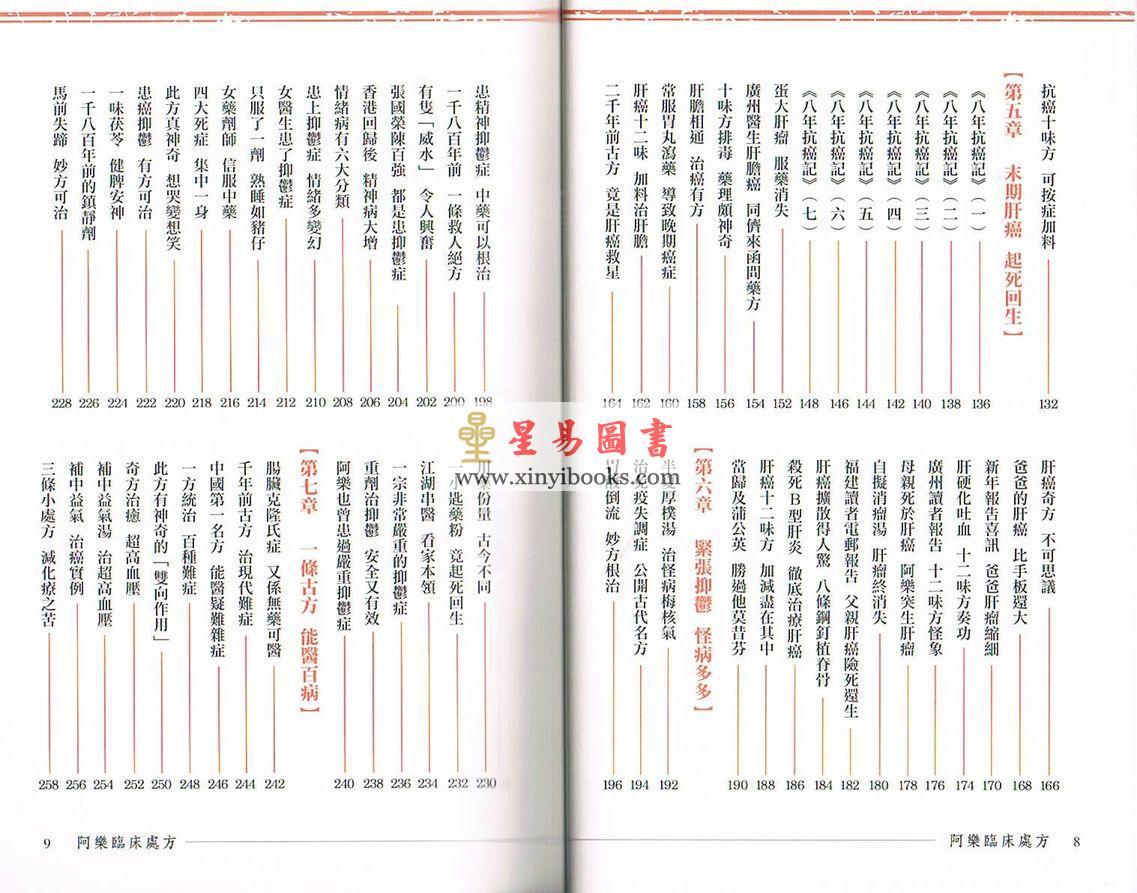 抗癌十味方 可按症加料 132
【第五章 末期肝癌 起死回生】
《八年抗癌記》（一） 136
《八年抗癌記》（二） 138
《八年抗癌記》（三） 140
《八年抗癌記》（四） 142
《八年抗癌記》（五） 144
《八年抗癌記》（六） 146
《八年抗癌記》（七） 148
蛋大肝瘤 服藥消失 152
廣州醫生肝膽癌 同儕來函問藥方 154
十味方排毒 藥理頗神奇 156
肝膽相通 治癌有方 158
常服胃丸瀉藥 導致晚期癌症 160
肝癌十二味 加料治肝膽 162
二千年前古方 竟是肝癌救星 164
肝癌奇方 不可思議 166
爸爸的肝癌 比手板還大 168
新年報告喜訊 爸爸肝瘤縮細 170
肝硬化吐血 十二味方奏功 174
廣州讀者報告 十二味方怪象 176
母親死於肝癌 阿樂突生肝瘤 178
自擬消瘤湯 肝瘤終消失 180
福建讀者電郵報告 父親肝癌險死還生 182
肝癌擴散得人驚 八條鋼釘植脊骨 184
殺死Ｂ型肝炎 徹底治療肝癌 186
肝癌十二味方 加減盡在其中 188
當歸及蒲公英 勝過他莫昔芬 190
【第六章 緊張抑鬱 怪病多多】
半夏厚樸湯 治怪病梅核氣 192
治免疫失調症 公開古代名方 194
胃酸倒流 妙方根治 196
阿樂臨床處方 8
患精神抑鬱症 中藥可以根治 198
一千八百年前 一條救人絕方 200
有隻「威水」 令人興奮 202
張國榮陳百強 都是患抑鬱症 204
香港回歸後 精神病大增 206
情緒病有六大分類 208
患上抑鬱症 情緒多變幻 210
女醫生患了抑鬱症 212
只服了一劑 熟睡如豬仔 214
女藥劑師 信服中藥 216
四大死症 集中一身 218
此方真神奇 想哭變想笑 220
患癌抑鬱 有方可治 222
一味茯苓 健脾安神 224
一千八百年前的鎮靜劑 226
馬前失蹄 妙方可治 228
份量 古今不同 230
一小匙藥粉 竟起死回生 232
江湖串醫 看家本領 234
一宗非常嚴重的抑鬱症 236
重劑治抑鬱 安全又有效 238
阿樂也曾患過嚴重抑鬱症 240
【第七章 一條古方 能醫百病】
腸臟克隆氏症 又係無藥可醫 242
千年前古方 治現代難症 244
中國第一名方 能醫疑難雜症 246
一方統治 百種難症 248
此方有神奇的「雙向作用」 250
奇方治癒 超高血壓 252
補中益氣湯 治超高血壓 254
補中益氣 治癌實例 256
三條小處方 減化療之苦 258
9 阿樂臨床處方
星易圖書
www.xinyibooks.com